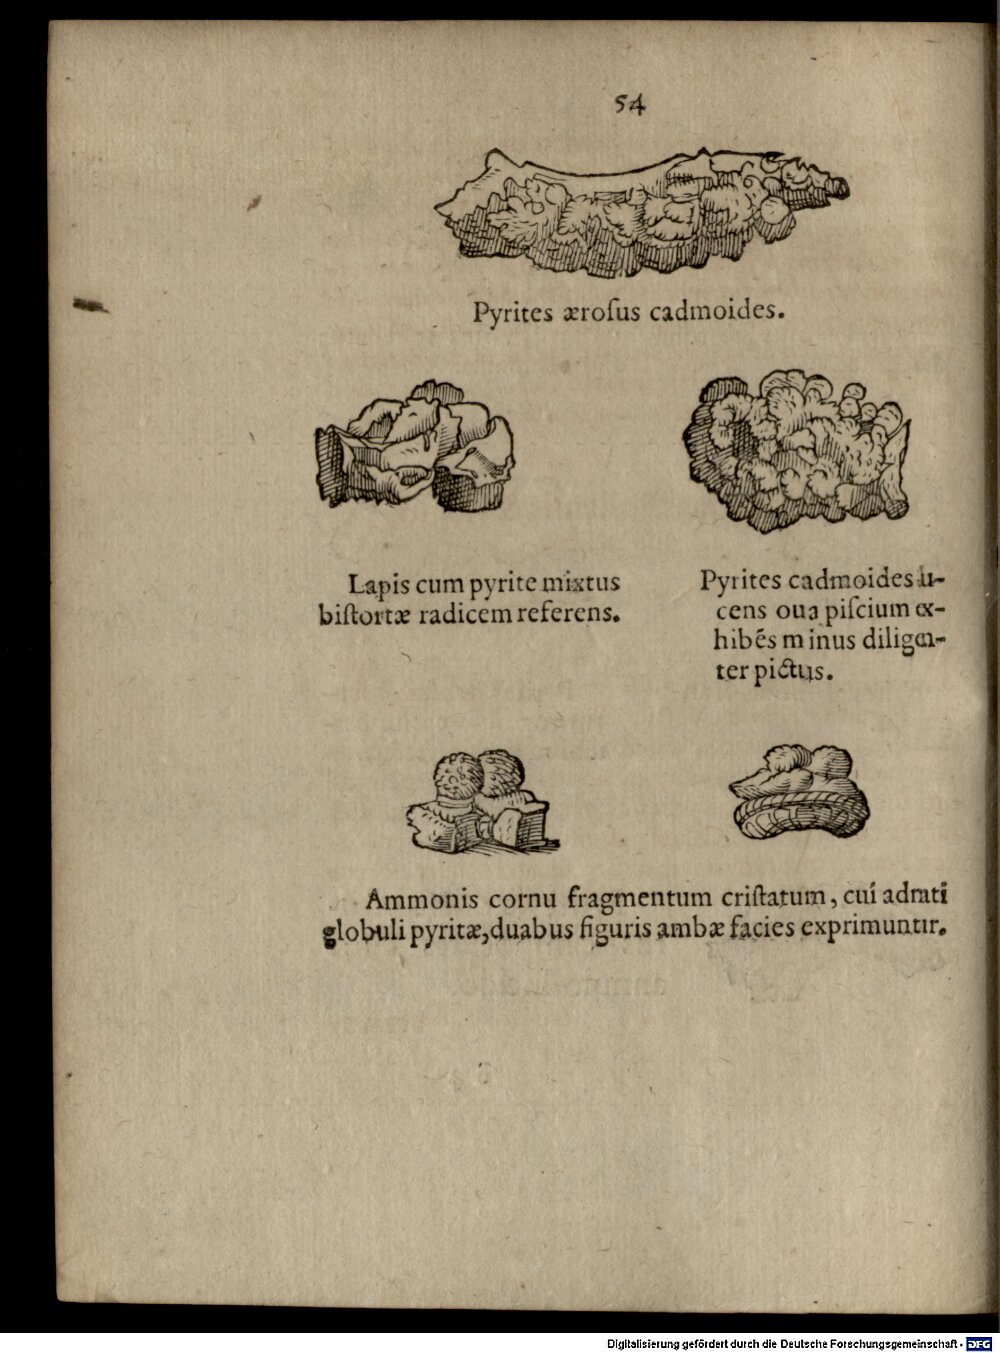 54
Pyrites æroſus cadmoides.
Lapis cum pyrite mixtus
biſtortæ radicem referens.
Pyrites cadmoides lu-
cens oua piſcium ex-
hibẽs minus diligen-
ter pictus.
Ammonis cornu fragmentum criſtatum, cui adnati
globuli pyritæ, duabus figuris ambæ facies exprimuntur.
Digitalisierung gefördert durch die Deutsche Forschungsgemeinschaft - DFG